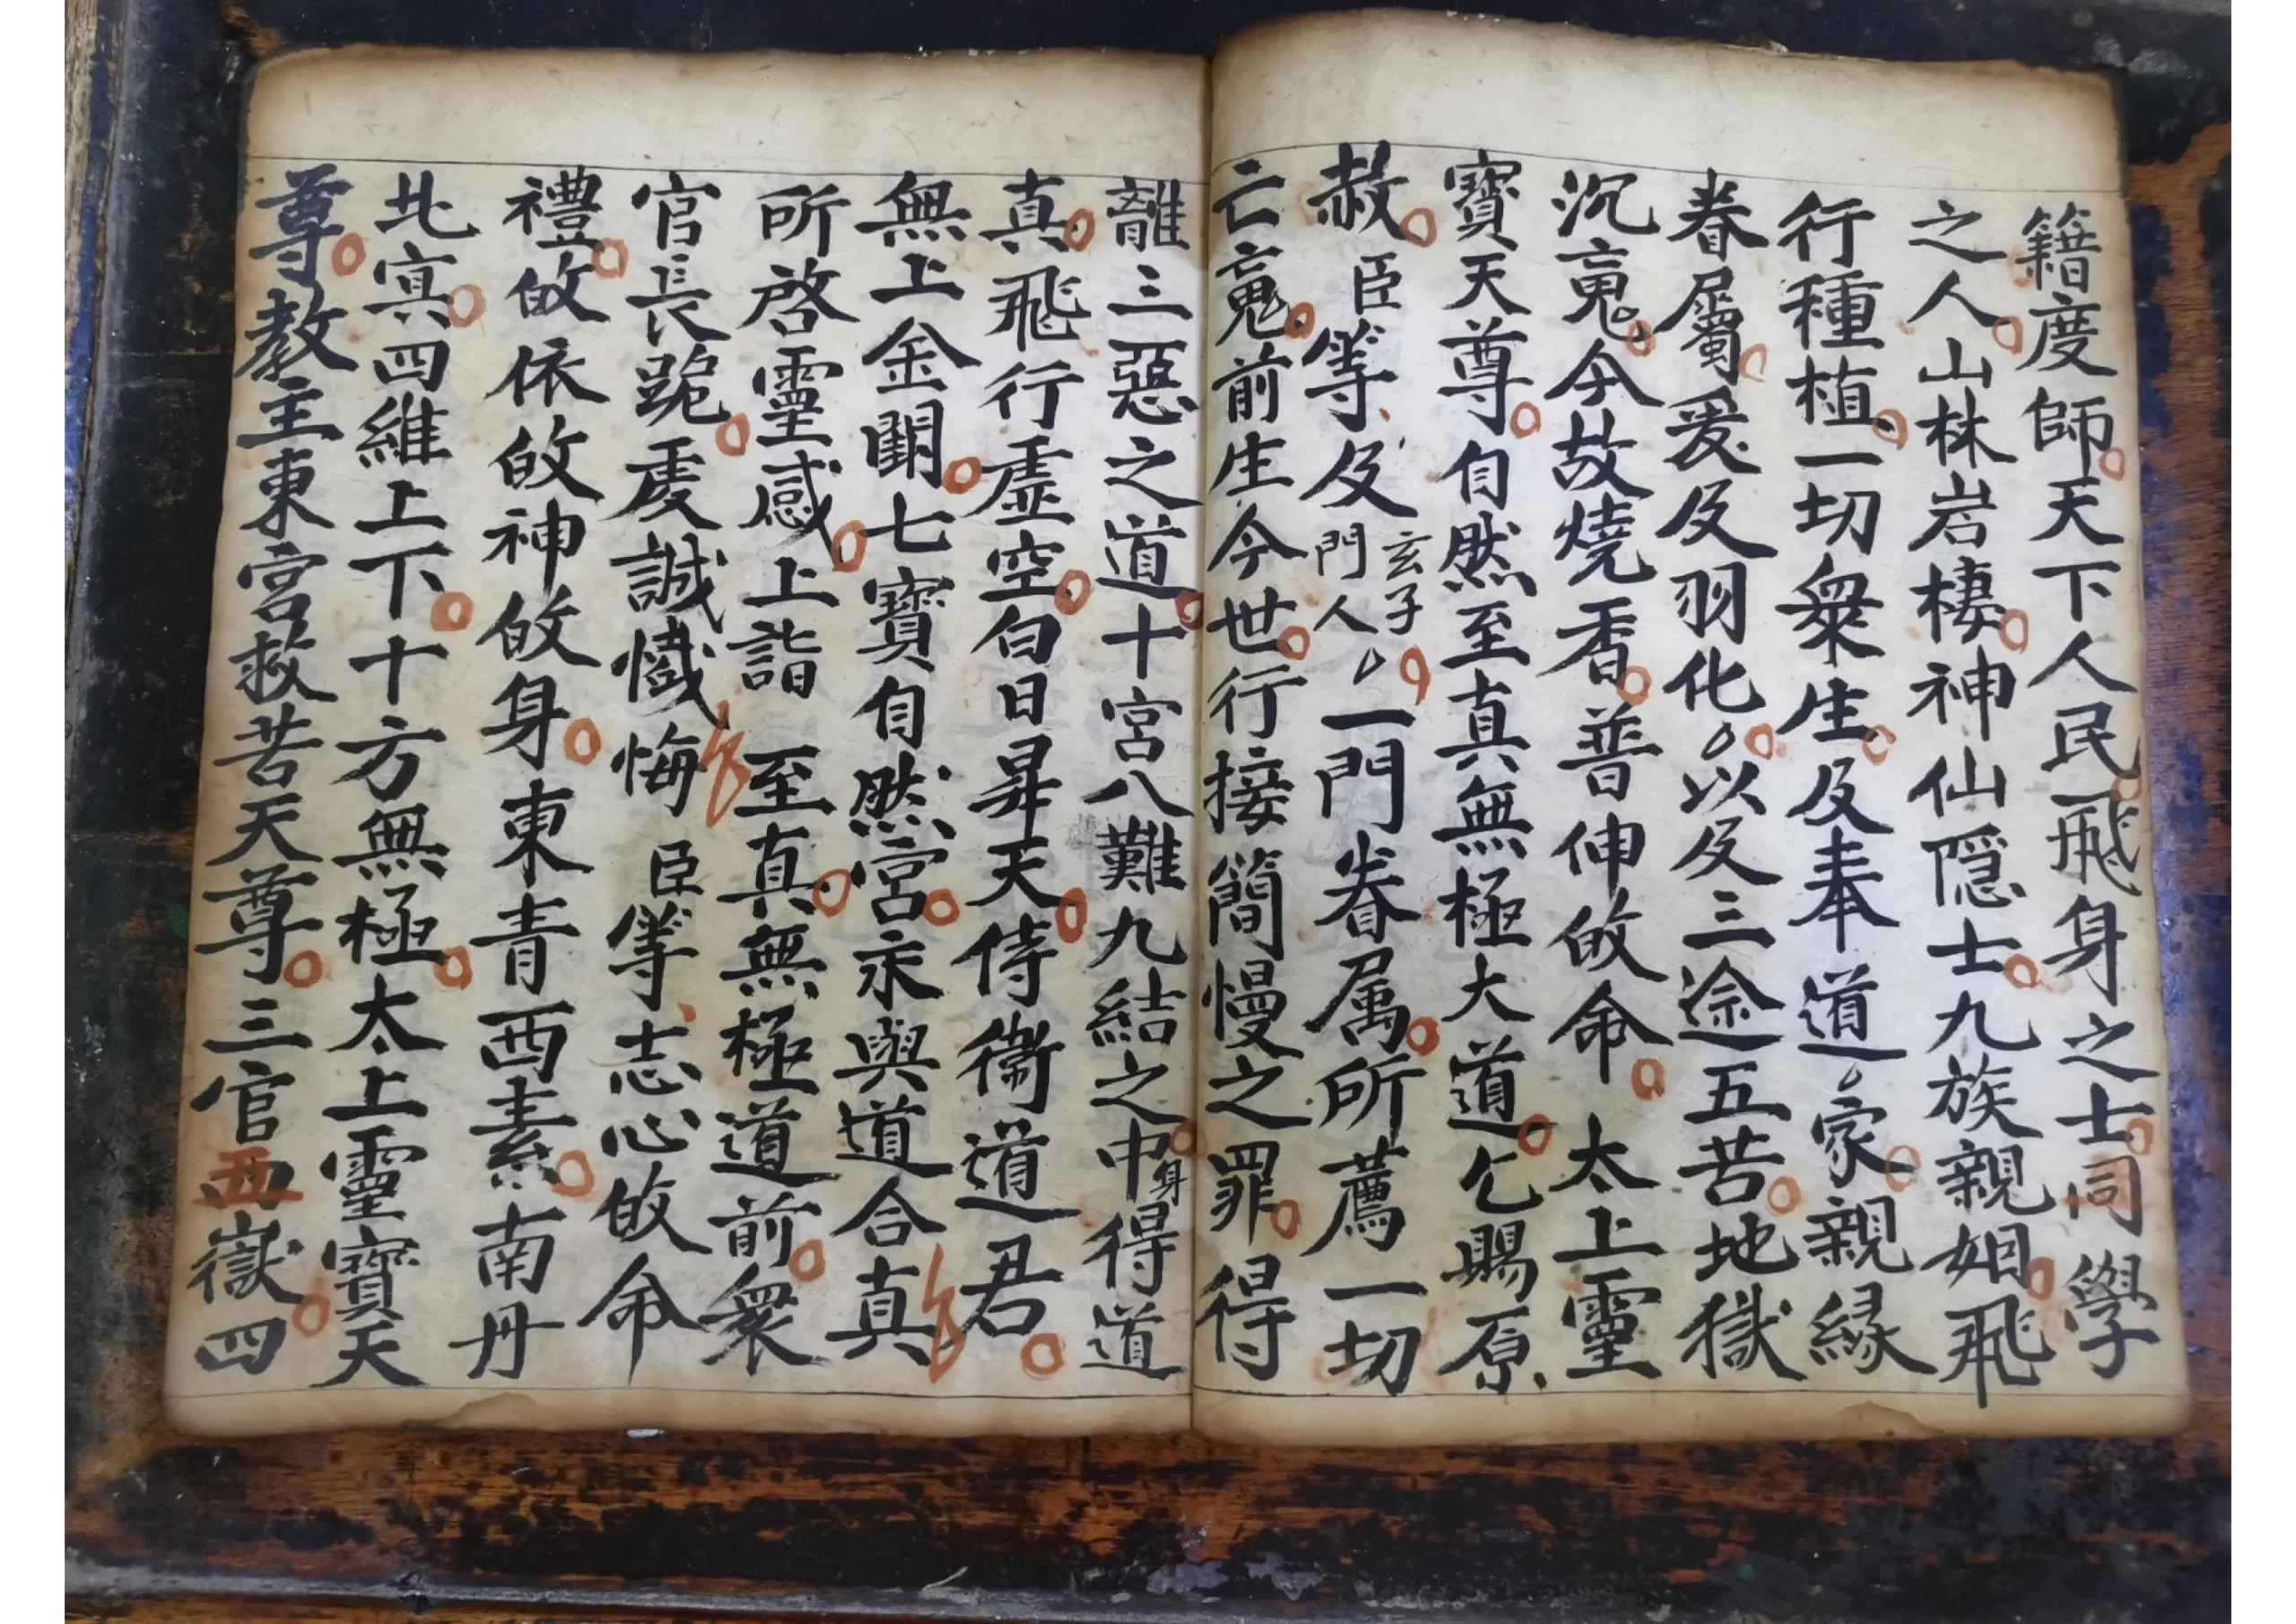 籍度師天下人民飛身之士同學
之人山林岩棲神仙隱士九族親姻飛
行種植一切衆生及奉道家親緣
眷屬爰及羽化以及三途五苦地獄
沉䰟今故燒香普伸皈命太上靈
寶天尊自然至真無極大道乞賜原
赦臣等及玄子門人一門眷属所薦一切
亡䰟前生今世行接簡慢之罪得
離三惡之道十宮八難九結之中身得道
真飛行虛空白日昇天侍衛道君
無上金闕七寶自然宮永與道合真
所啓靈感上詣至真無極道前衆
官長跪虔誠懺悔臣等志心皈命
禮皈依皈神皈身東青西素南丹
北寘四維上下十方無極太上靈寶天
尊教主東宮救苦天尊三官西嶽四